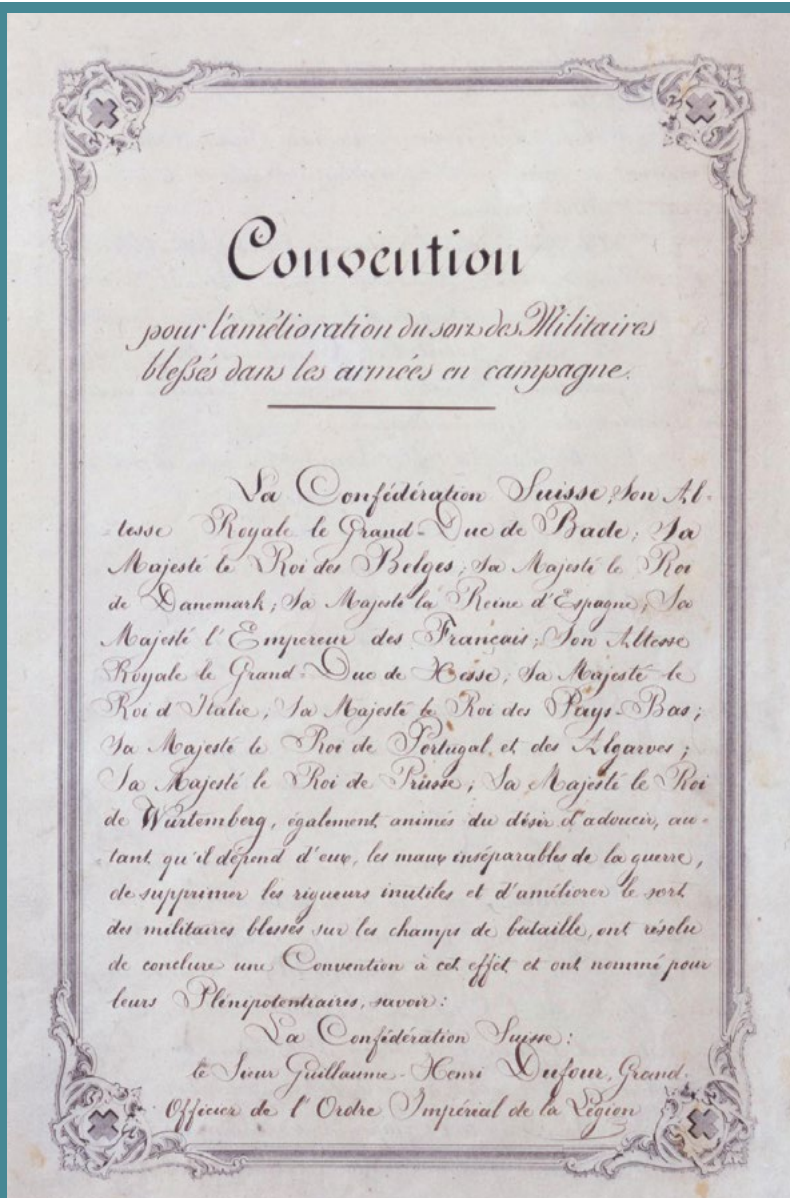 Convention
pour l'amélioration du sort des Militaires
blessés dans les armées en campagne.
La Confédération Suisse; Son Al-
tesse Royale le Grand-Duc de Bade; Sa
Majesté le Roi des Belges; Sa Majesté le Roi
de Danemark; Sa Majesté la Reine d'Espagne; Sa
Majesté l'Empereur des Français; Son Altesse
Royale le Grand-Duc de Hesse; Sa Majesté le
Roi d'Italie; Sa Majesté le Roi des Pays-Bas;
Sa Majesté le Roi de Portugal et des Algarves;
Sa Majesté le Roi de Prusse; Sa Majesté le Roi
de Wurtemberg, également animés du désir d'adoucir, au-
tant qu'il dépend d'eux, les maux inséparables de la guerre,
de supprimer les rigueurs inutiles et d'améliorer le sort
des militaires blessés sur les champs de bataille, ont résolu
de conclure une Convention à cet effet et ont nommé pour
leurs Plénipotentiaires, savoir:
La Confédération Suisse:
le Sieur Guillaume-Henri Dufour, Grand-
Officier de l'Ordre Impérial de la Légion